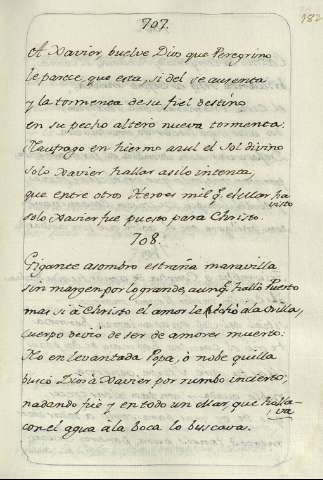 182
707.
A Xavier, buelve Dios que Peregrino
le parece, que esta, si del se ausenta
y la tormenta de su fiel destino
en su pecho alterò nueva tormenta:
Naufrago en hiermo azul el Sol divino
solo Xavier hallar asilo intenta,
que entre otros Heroes mil q.e el Mar ha visto
solo Xavier fue puerto para Christo.
708.
Gigante asombro estraña maravilla
sin margen por lo grande, aunq.e hallò Puerto
mas si à Christo el amor le hechò à la Orilla,
cuerpo deviò de ser de amores muerto:
No en levantada Popa, ò noble quilla
buscò Dios à Xavier por rumbo incierto;
nadando fuè y en todo un Mar, que hallava
con el agua à la boca lo buscava.